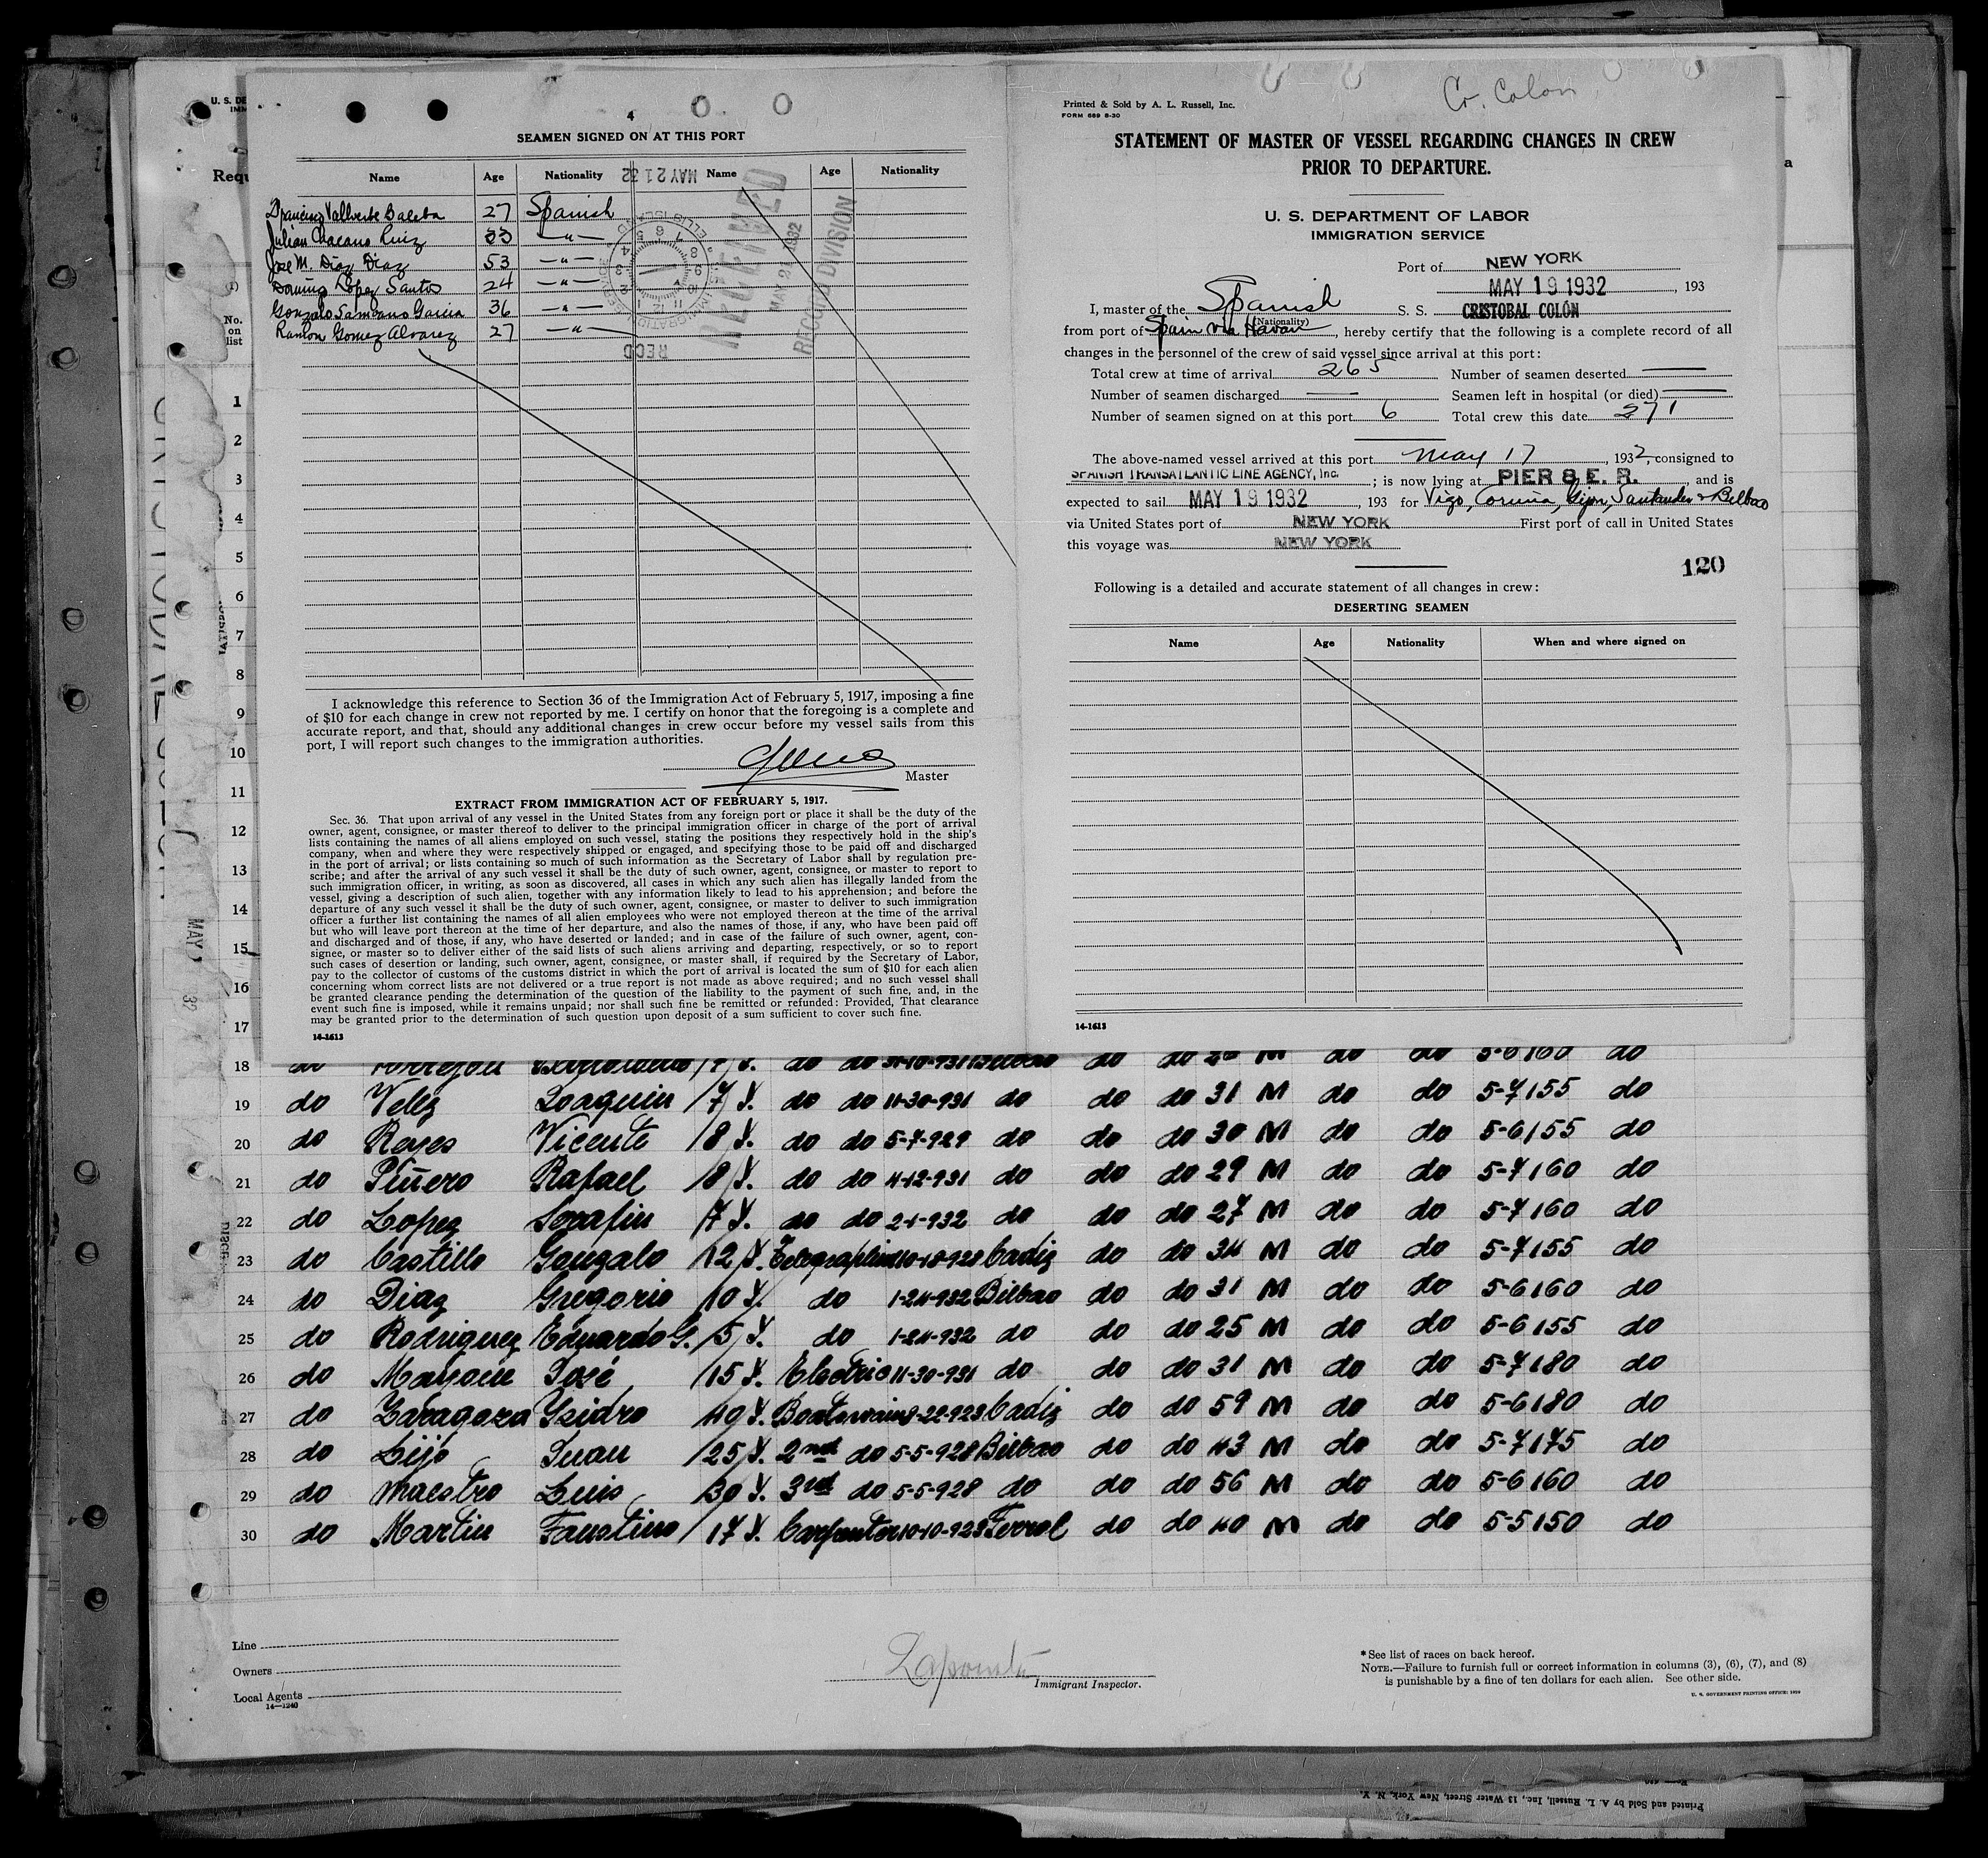 SEAMEN SIGNED ON AT THIS PORT
Name Age Nationality Name Age Nationality
Valverde 27 Spanish
Julian Ruiz 33 — " —
Jose M. Diaz Diaz 53 — " —
Lopez Santos 24 — " —
Gonzalo Garcia 36 — " —
Ramon Gomez Alvarez 27 — " —
MAY 21 32
RECEIVED
MAY 21 1932
RECORD DIVISION
RECD
I acknowledge this reference to Section 36 of the Immigration Act of February 5, 1917, imposing a fine
of $10 for each change in crew not reported by me. I certify on honor that the foregoing is a complete and
accurate report, and that, should any additional changes in crew occur before my vessel sails from this
port, I will report such changes to the immigration authorities.
Master
EXTRACT FROM IMMIGRATION ACT OF FEBRUARY 5, 1917.
Sec. 36. That upon arrival of any vessel in the United States from any foreign port or place it shall be the duty of the
owner, agent, consignee, or master thereof to deliver to the principal immigration officer in charge of the port of arrival
lists containing the names of all aliens employed on such vessel, stating the positions they respectively hold in the ship's
company, when and where they were respectively shipped or engaged, and specifying those to be paid off and discharged
in the port of arrival; or lists containing so much of such information as the Secretary of Labor shall by regulation pre-
scribe; and after the arrival of any such vessel it shall be the duty of such owner, agent, consignee, or master to report to
such immigration officer, in writing, as soon as discovered, all cases in which any such alien has illegally landed from the
vessel, giving a description of such alien, together with any information likely to lead to his apprehension; and before the
departure of any such vessel it shall be the duty of such owner, agent, consignee, or master to deliver to such immigration
officer a further list containing the names of all alien employees who were not employed thereon at the time of the arrival
but who will leave port thereon at the time of her departure, and also the names of those, if any, who have been paid off
and discharged and of those, if any, who have deserted or landed; and in case of the failure of such owner, agent, con-
signee, or master so to deliver either of the said lists of such aliens arriving and departing, respectively, or so to report
such cases of desertion or landing, such owner, agent, consignee, or master shall, if required by the Secretary of Labor,
pay to the collector of customs of the customs district in which the port of arrival is located the sum of $10 for each alien
concerning whom correct lists are not delivered or a true report is not made as above required; and no such vessel shall
be granted clearance pending the determination of the question of the liability to the payment of such fine, and, in the
event such fine is imposed, while it remains unpaid; nor shall such fine be remitted or refunded: Provided, That clearance
may be granted prior to the determination of such question upon deposit of a sum sufficient to cover such fine.
14-1613
Cr. Colon
Printed & Sold by A. L. Russell, Inc.
FORM 689 8-30
STATEMENT OF MASTER OF VESSEL REGARDING CHANGES IN CREW
PRIOR TO DEPARTURE.
U. S. DEPARTMENT OF LABOR
IMMIGRATION SERVICE
Port of NEW YORK
MAY 19 1932, 193
I, master of the Spanish S. S. CRISTOBAL COLÓN
(Nationality)
from port of Spain via Havan, hereby certify that the following is a complete record of all
changes in the personnel of the crew of said vessel since arrival at this port:
Total crew at time of arrival 265 Number of seamen deserted —
Number of seamen discharged — Seamen left in hospital (or died) —
Number of seamen signed on at this port 6 Total crew this date 271
The above-named vessel arrived at this port May 17, 1932, consigned to
SPANISH TRANSATLANTIC LINE AGENCY, Inc. ; is now lying at PIER 8 E. R. and is
expected to sail MAY 19 1932, 193 for Vigo, Coruña, Gijon, Santander & Bilbao
via United States port of NEW YORK First port of call in United States
this voyage was NEW YORK
120
Following is a detailed and accurate statement of all changes in crew:
DESERTING SEAMEN
Name Age Nationality When and where signed on
14-1613
No.
on
list
1
2
3
4
5
6
7
8
9
10
11
12
13
14
15
16
17
18 do do do 31-10-931 Bilbao do do M do do 5-6 160 do
19 do Velez Joaquin 7 Y. do do 11-30-931 do do do 31 M do do 5-7 155 do
20 do Reyes Vicente 8 Y. do do 5-7-929 do do do 30 M do do 5-6 155 do
21 do Piñero Rafael 8 Y. do do 4-12-931 do do do 29 M do do 5-7 160 do
22 do Lopez Serafin 7 Y. do do 2-1-932 do do do 27 M do do 5-7 160 do
23 do Castillo Gonzalo 12 Y. 10-18-928 Cadiz do do 34 M do do 5-7 155 do
24 do Diaz Gregorio 10 Y. do 1-24-932 Bilbao do do 31 M do do 5-6 160 do
25 do Rodriguez Eduardo G. 5 Y. do 1-24-932 do do do 25 M do do 5-6 155 do
26 do José 15 Y. Electric 11-30-931 do do do 31 M do do 5-7 180 do
27 do Zaragoza Ysidro 40 Y. Boatswain 9-22-923 Cadiz do do 59 M do do 5-6 180 do
28 do Lijo Juan 25 Y. 2nd do 5-5-928 Bilbao do do 43 M do do 5-7 175 do
29 do Maestro Luis 30 Y. 3rd do 5-5-928 do do do 56 M do do 5-6 160 do
30 do Martin Faustino 17 Y. Carpenter 10-10-928 Ferrol do do 40 M do do 5-5 150 do
Line
Owners
Local Agents
14—1240
Immigrant Inspector.
* See list of races on back hereof.
NOTE.—Failure to furnish full or correct information in columns (3), (6), (7), and (8)
is punishable by a fine of ten dollars for each alien. See other side.
Printed and Sold by A. L. Russell, Inc., 13 Water Street, New York, N. Y.